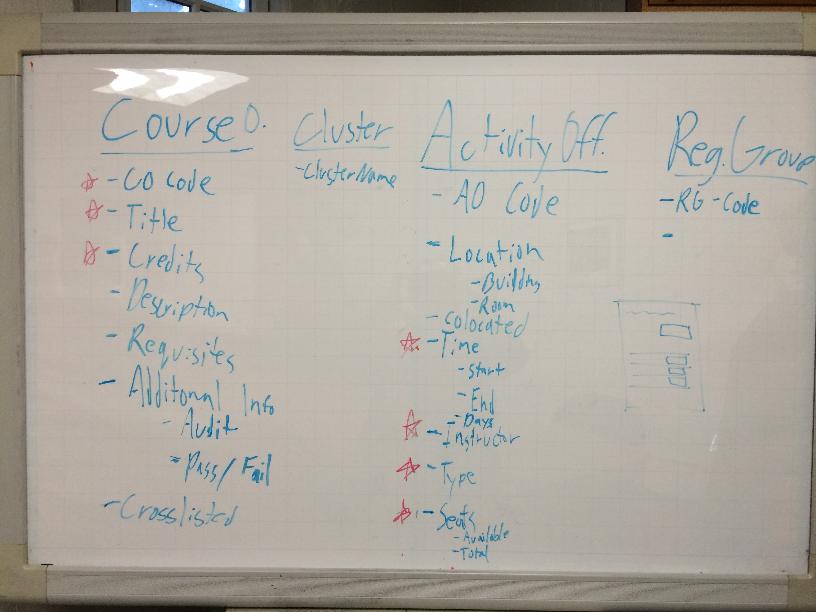 Course O.
- CO Code
- Title
- Credits
- Description
- Requisites
- Additonal Info
- Audit
- Pass/Fail
- Crosslisted
Cluster
- ClusterName
Activity Off.
- AO Code
- Location
- Building
- Room
- Colocated
- Time
- Start
- End
- Days
- Instructor
- Type
- Seats
- Available
- Total
Reg. Group
- RG - Code
-